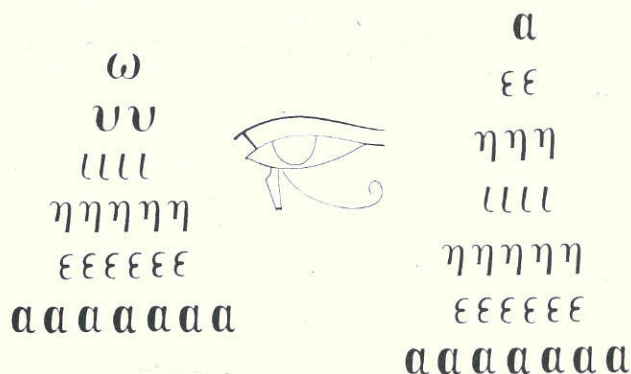 ω
υυ
ιιιι
ηηηηη
εεεεεε
ααααααα
α
εε
ηηη
ιιιι
ηηηηη
εεεεεε
ααααααα